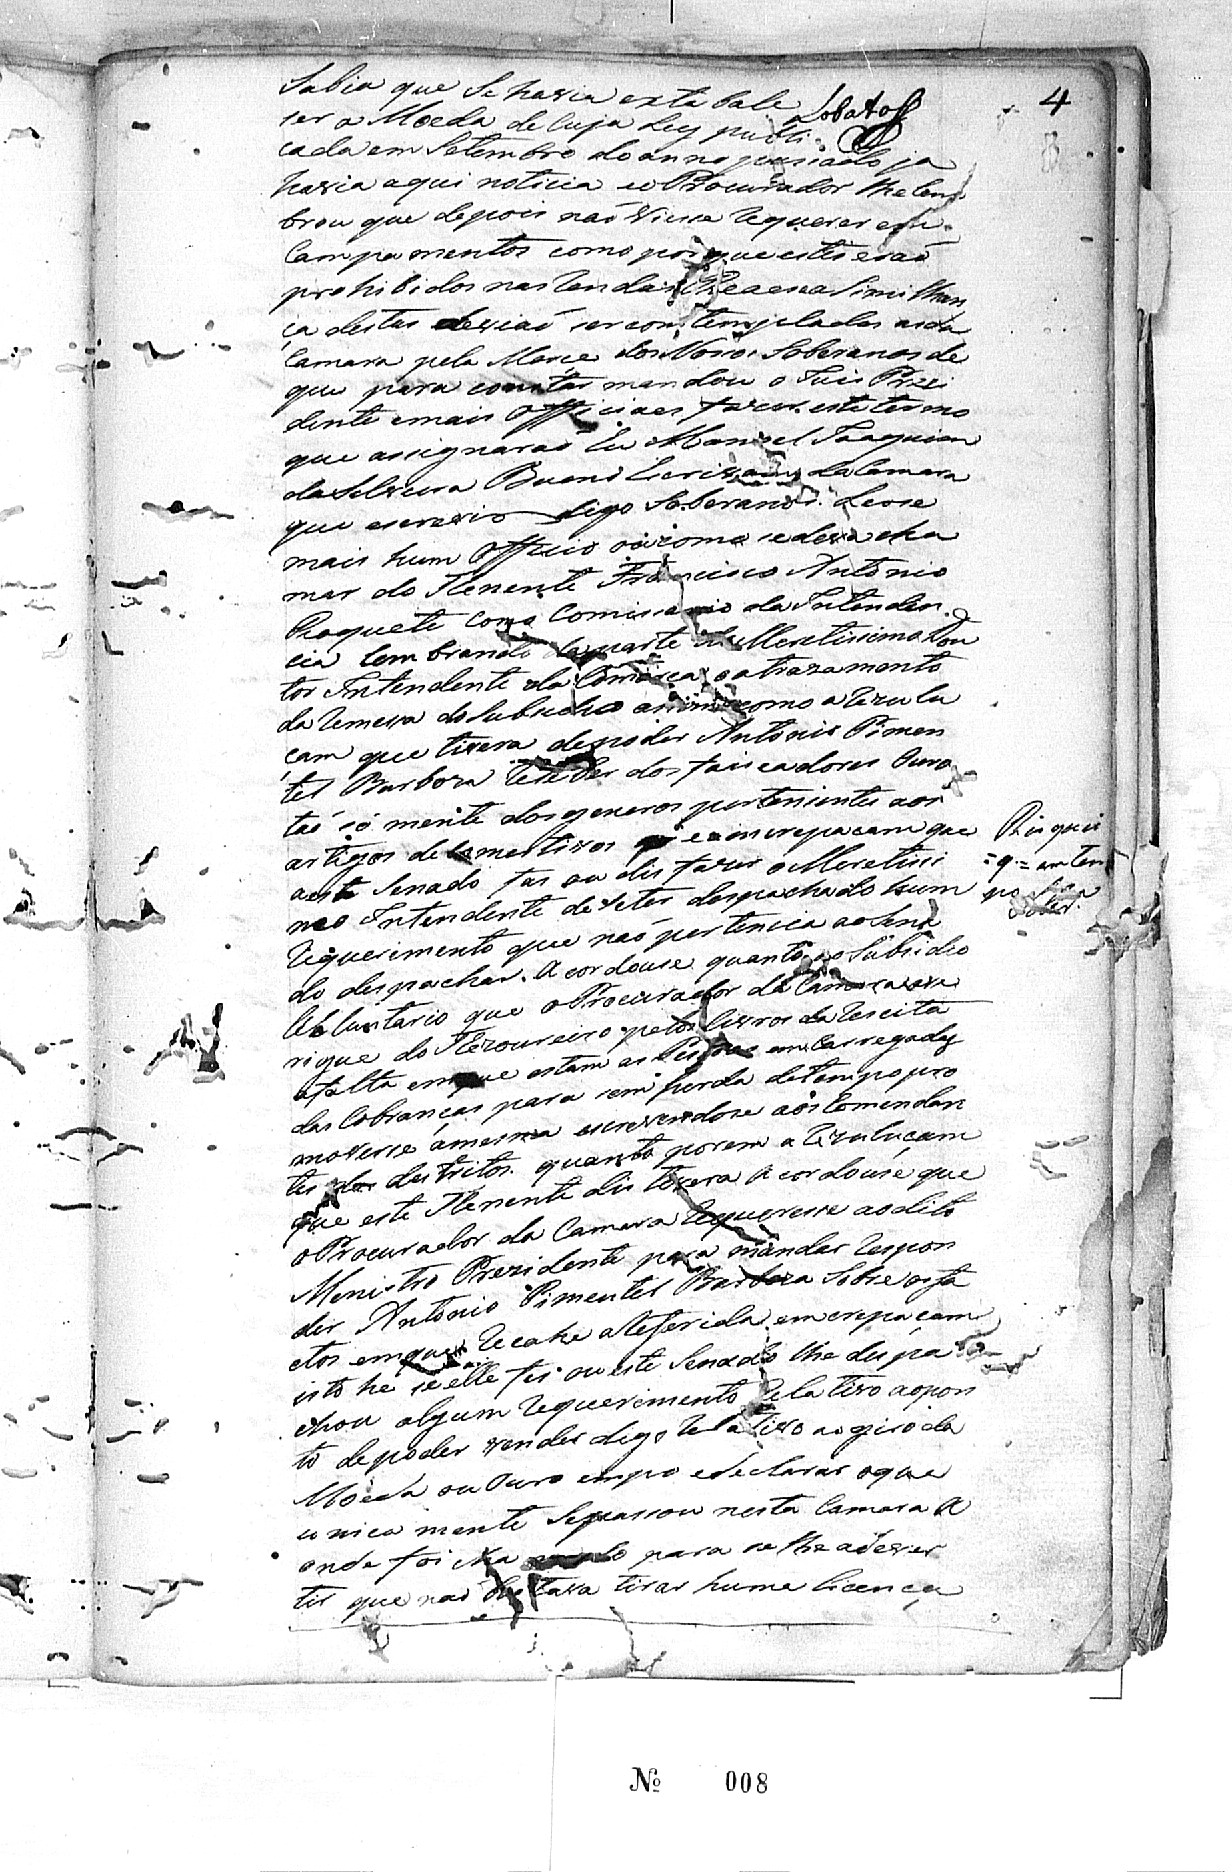 4
Lobato
Sabia que se havia estabale
ser a Moeda de cuja Ley publi-
cada em Setembro do anno passado ja
havia aqui noticia e o Procurador lhe lem
brou que depois naõ viesse requerer en-
campamentos como porque estes eraõ
prohibidos nas rendas Reaes a similhan
ça destas deviaõ ser contempladas as da
Camara pela Merce dos Nosos Soberanos de
que para constar mandou o Juis Prezi
dente e mais Officiaes fazer este termo
que assignaraõ Eu Manoel Joaquim
da Silveira Bueno Escrivam da Camara
que escrevio digo Soberanos. Leose
mais hum Officio ou como se deva cha
mar do Tenente Francisco Antonio
Roquete como Comissario da Intenden-
cia lembrando da parte do Meretissimo Dou
tor Intendente da Comarca o atrazamento
da remessa do Subsidio assim como a rezulu
cam que tivera de poder Antonio Pimen
tel Barboza receber dos faiscadores Ouro
taõ só mente dos generos pertencentes aos
artigos de comestivos e a increpacam que
a este Senado fas ou dis fazer o Meretissi
mo Intendente de se ter despachado hum
requerimento que naõ pertencia ao Sena
do despachar. Acordouse quanto ao Subsidio
Voluntario que o Procurador da Camara ave
rigue do Tezoureiro pelos livros da receita
a falta em que estam as Pessoas emcarregadas
das Cobranças para sem perda de tempo pro
moverse a mesma escrevendose aos Comendan
tes dos destritos. quanto porem a rezulucam
que este Tenente dis tivera acordouse que
o Procurador da Camara requeresse ao dito
Menistro Prezidente para mandar respon
der Antonio Pimentel Barboza sobre os fa
ctos em que recahe a referida emcrepacam
isto he se elle fes ou este Senado lhe despa
chou algum requerimento relativo ao pon
to de poder vender digo relativo ao giro da
Moeda ou Ouro em po e declarar o que
unica mente se passou nesta Camara a
onde foi chamado para se lhe adever
tir que naõ bastava tirar huma licença
Risquei
=q= em tem
po
Nº 008